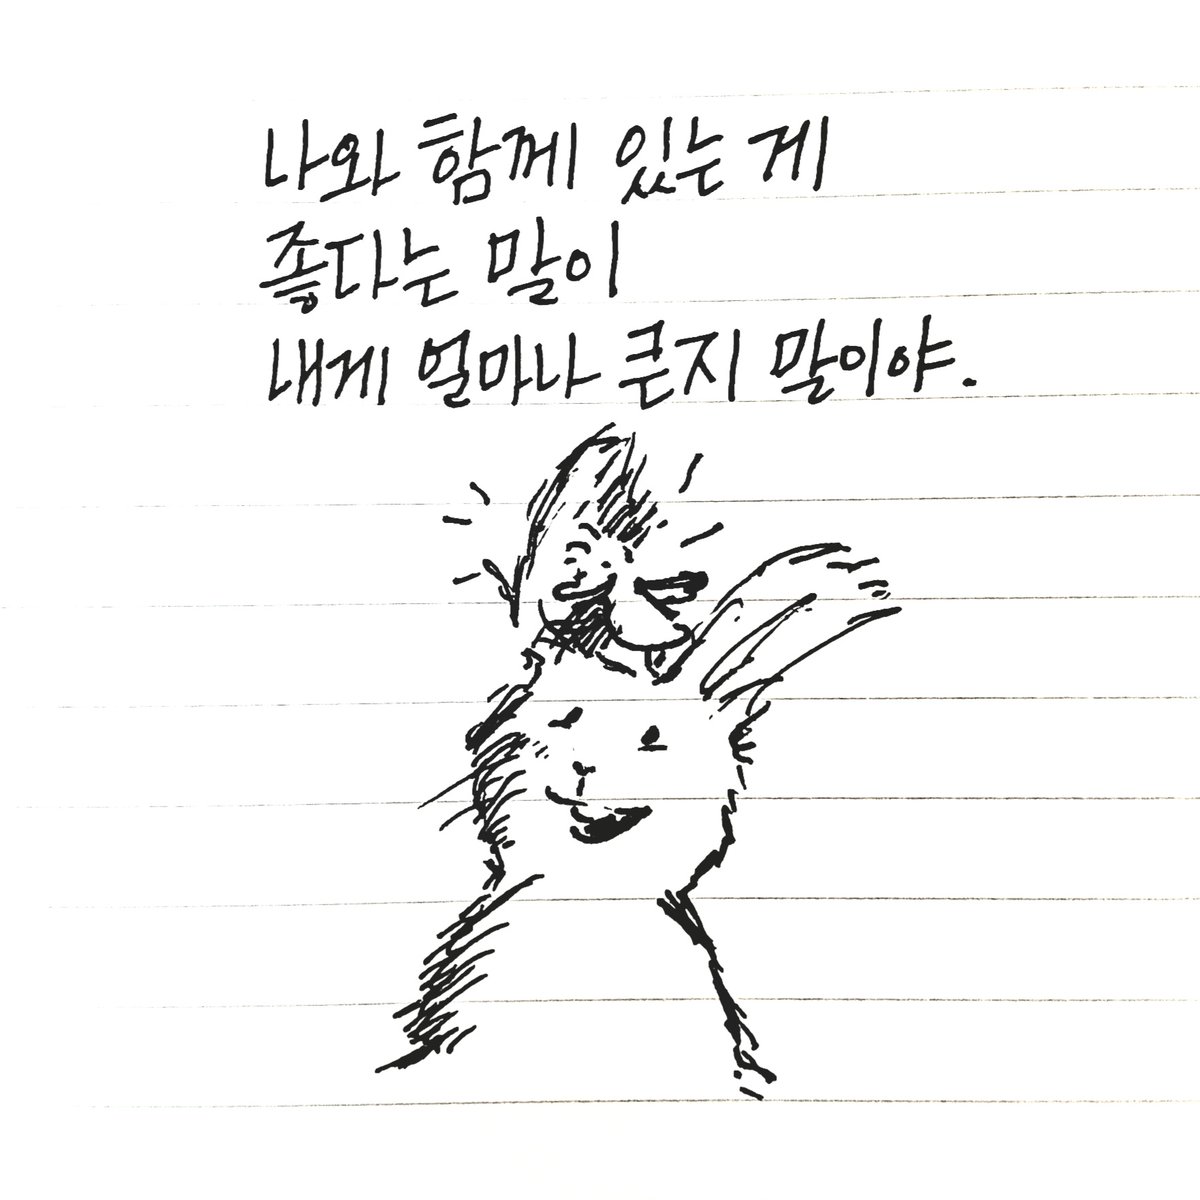 나와 함께 있는 게
좋다는 말이
내게 얼마나 큰지 말이야.